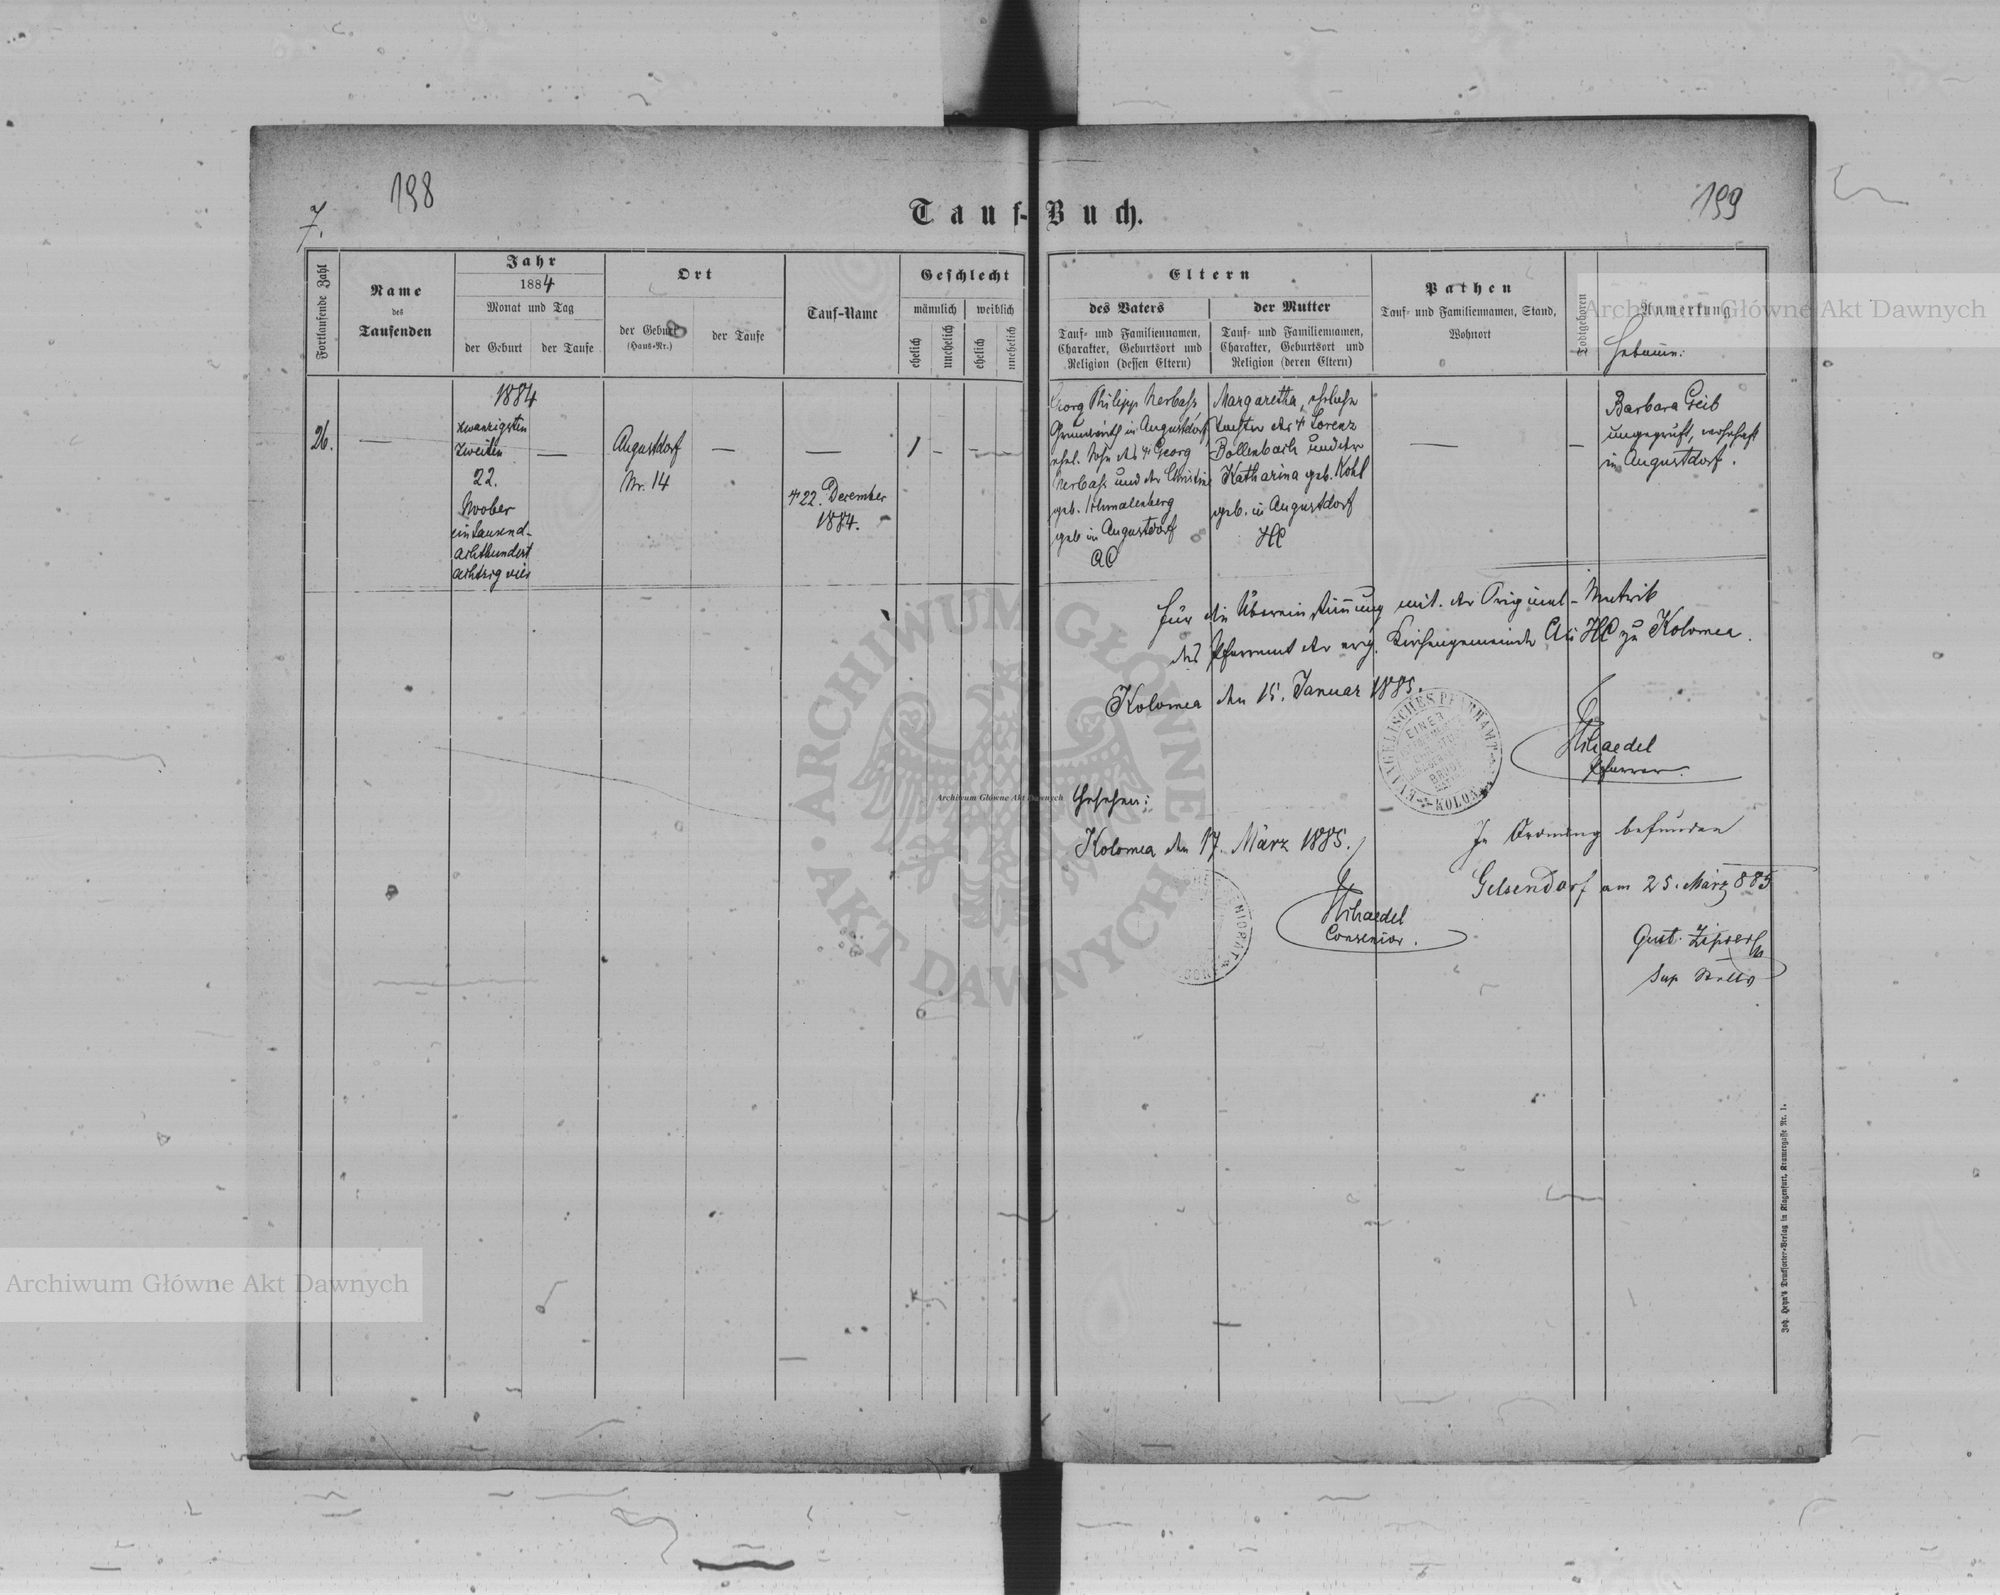 198
199
7.
Tauf-Buch.
Fortlaufende Zahl
Name
des
Taufenden
Jahr
1884
Monat und Tag
der Geburt
der Taufe
Ort
der Geburt
(Haus-Nr.)
der Taufe
Tauf-Name
Geschlecht
männlich
weiblich
ehelich
unehelich
ehelich
unehelich
Eltern
des Vaters
Tauf- und Familiennamen,
Charakter, Geburtsort und
Religion (dessen Eltern)
der Mutter
Tauf- und Familiennamen,
Charakter, Geburtsort und
Religion (deren Eltern)
Pathen
Tauf- und Familiennamen, Stand,
Wohnort
Todtgeboren
Anmerkung
Hebamme:
26.
—
1884
zwanzigsten
zweiten
22.
eintausend-
achthundert
achtzig vier
—
Augustdorf
Nr. 14
—
—
† 22. Dezember
1884.
1
-
-
Georg Philipp Nerbass
Grundwirth in Augustdorf
ehel. Sohn des † Georg
Nerbass und der Christine
geb. Schmalenberg
geb in Augustdorf
AC
Margaretha, eheliche
Tochter des † Lorenz
Bollenbach und der
Katharina geb. Kohl
geb. in Augustdorf
HC
—
—
Barbara Geib
ungeprüft, wohnhaft
in Augustdorf.
Für die Übereinstimmung mit der Original-Matrik
des Pfarramt der evg. Kirchengemeinde zu Kolomea.
Kolomea den 15. Januar 1885.
EVANGELISCHES PFARRAMT
KOLOMEA
Pfarrer.
Gesehen:
Kolomea den 17. März 1885.
Consenior.
In Ordnung befunden
Gelsendorf am 25. März 885
Gust. Zipser
Joh. Heyn's Drucksorten-Verlag in Klagenfurt, Kramergasse Nr. 1.
ARCHIWUM GŁÓWNE AKT DAWNYCH
Archiwum Główne Akt Dawnych
Archiwum Główne Akt Dawnych
Archiwum Główne Akt Dawnych